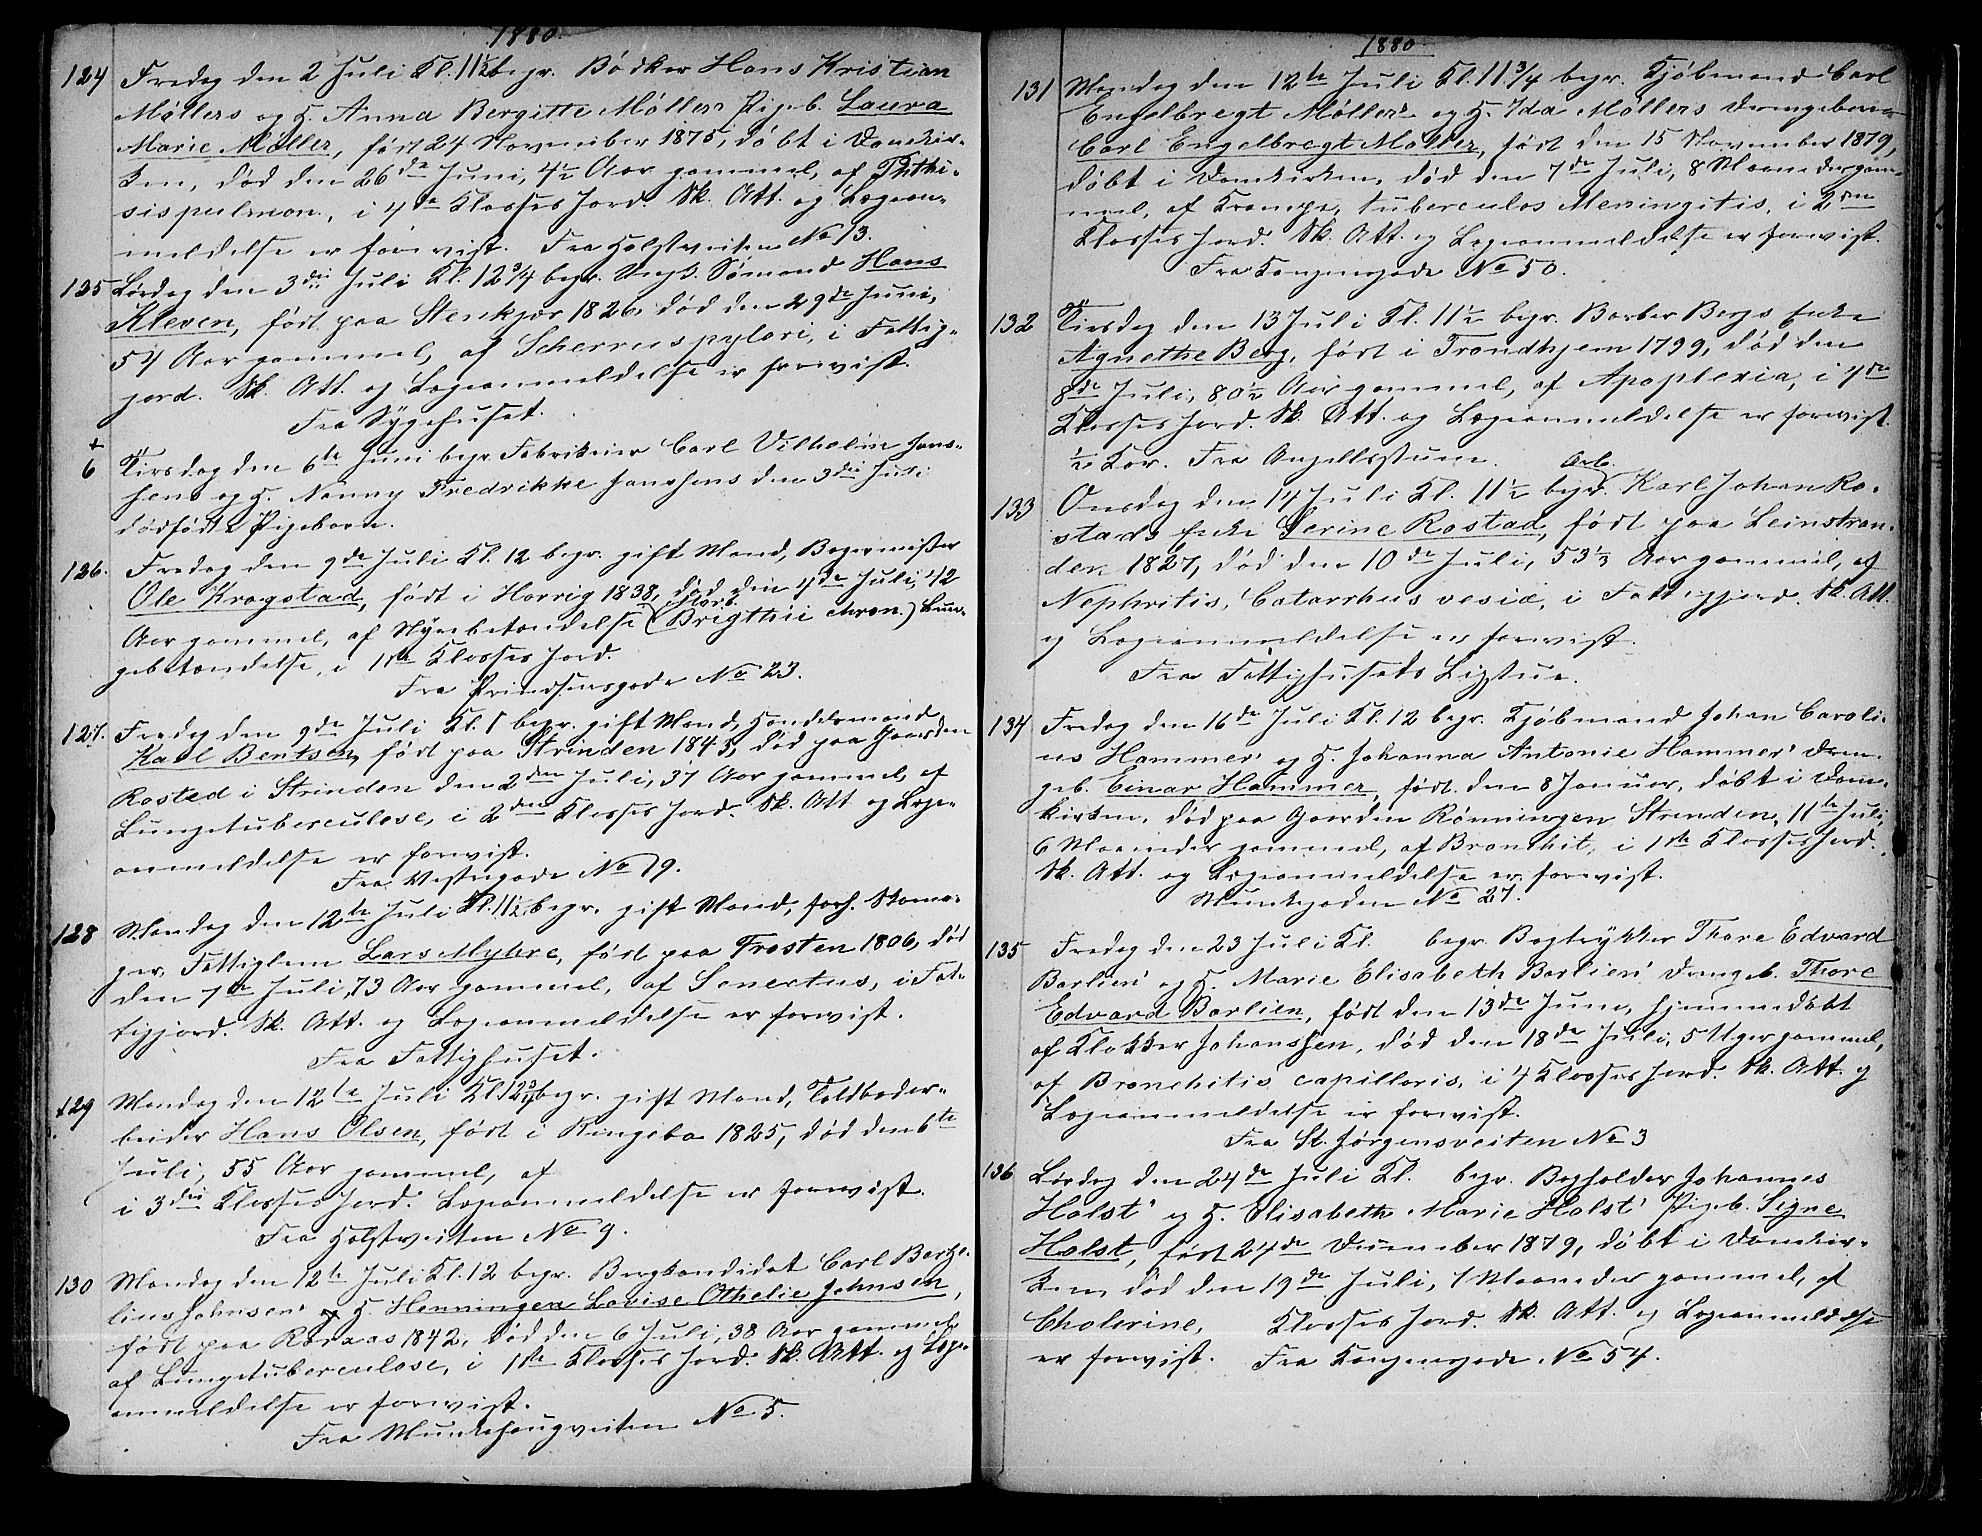 1880.
124 Fredag den 2 Juli Kl. 11½ begr. Bødker Hans Kristian
Møllers og H. Anna Bergitte Møllers Pigeb. Laura
Marie Møller, født 24 November 1875, døbt i Domkir-
ken, død den 26de Juni, 4½ Aar gammel, af Phthi-
sis pulmon., i 4de Klasses Jord. Sk. Att. og Lægean-
meldelse er forevist. Fra Holstveiten No 13.
125 Lørdag den 3die Juli Kl. 12¾ begr. Ungk. Sømand Hans
Kleven, født paa Stenkjær 1826, død den 29de Juni,
54 Aar gammel, af Scherrus pylori, i Fattig-
jord. Sk. Att. og Lægeanmeldelse er forevist.
Fra Sygehuset.
+
6 Tirsdag den 6te Juni begr. Fabrikeier Carl Vilhelm Jens-
sens og H. Nanny Fredrikke Janssens den 3die Juli
dødfødte Pigebarn.
126. Fredag den 9de Juli Kl. 12 begr. gift Mand, Bagermester
Ole Kragstad, født i Horrig 1838, død den 4de Juli, 42
Aar gammel, af Nyrebetændelse (Morb. Brigthii chron.) Lun-
gebetændelse, i 1ste Klasses Jord.
Fra Prindsensgade No 23.
127. Fredag den 9de Juli Kl. 1 begr. gift Mand, Handelsmand
Karl Bentsen, født paa Strinden 1843, død paa Gaarden
Rosted i Strinden den 2den Juli, 37 Aar gammel, af
Lungetuberculose, i 2den Klasses Jord. Sk. Att og Læge-
anmeldelse er forevist.
Fra Vestregade No 9.
128 Mandag den 12te Juli Kl. 11½ begr. gift Mand, forh. Skoma-
ger, Fattiglem Lars Myhre, født paa Frosten 1806, død
den 7de Juli, 73 Aar gammel, af Senectus, i Fat-
tigjord. Sk. Att. og Lægeanmeldelse er forevist.
Fra Fattighuset.
129 Mandag den 12te Juli Kl. 12¾ begr. gift Mand, Toldbodar-
beider Hans Olsen, født i Ringebo 1825, død den 6te
Juli, 55 Aar gammel, af
i 3die Klasses Jord. Lægeanmeldelse er forevist.
Fra Holstveiten No 9.
130 Mandag den 12te Juli Kl. 12 begr. Bergkandidat Carl Barthe-
lius Johnsens og H. Henningen Lovise Othelie Johnsen,
født paa Røraas 1842, død den 6 Juli, 38 Aar gammel
af Lungetuberculose, i 1ste Klasses Jord. Sk. Att. og Læge-
anmeldelse er forevist.
Fra Munkehaugveiten No 5.
1880
131 Mandag den 12te Juli Kl. 11¾ begr. Kjøbmand Carl
Engelbregt Møllers og H. Ida Møllers Drengebarn
Carl Engelbregt Møller, født den 15 November 1879,
døbt i Domkirken, død den 7de Juli, 8 Maaneder gam-
mel, af Krampe, tuberculos Meningitis, i 2den
Klasses Jord. Sk. Att. og Lægeanmeldelse er forevist.
Fra Kongensgade No 50.
132 Tirsdag den 13 Juli Kl. 11½ begr. Barber Bergs Enke
Agnethe Berg, født i Trondhjem 1799, død den
8de Juli, 80½ Aar gammel, af Apoplexia, i 4de
Klasses Jord. Sk. Att. og Lægeanmeldelse er forevist.
½ Kor. Fra Angellsstuen.
133 Onsdag den 14 Juli Kl. 11½ begr. Arb. Karl Johan Ro-
stads Enke Serine Rostad, født paa Leinstran-
den 1827, død den 10de Juli, 53½ Aar gammel, af
Nephritis, Catarrhus vesiæ, i Fattigjord. Sk. Att.
og Lægeanmeldelse er forevist.
Fra Fattighusets Ligstue.
134 Fredag den 16de Juli Kl. 12 begr. Kjøbmand Johan Caroli-
us Hammer' og H. Johanna Antonie Hammer' Dren-
geb. Einar Hammer, født den 8 Januar, døbt i Dom-
kirken, død paa Gaarden Rønningen Strinden, 11te Juli,
6 Maaneder gammel, af Bronchit, i 1ste Klasses Jord.
Sk. Att. og Lægeanmeldelse er forevist.
Munkegaden No 27.
135 Fredag den 23 Juli Kl. begr. Bogtrykker Thore Edvard
Barlien' og H. Marie Elisabeth Barlien' Drengeb. Thore
Edvard Barlien, født den 13de Juni, hjemmedøbt
af Klokker Johanssen, død den 18de Juli, 5 Uger gammel,
af Bronchitis capillaris, i 4 Klasses Jord. Sk. Att. og
Lægeanmeldelse er forevist.
Fra St. Jørgensveiten No 3
136 Lørdag den 24de Juli Kl. begr. Bogholder Johannes
Holst' og H. Elisabeth Marie Holst' Pigeb. Signe
Holst, født 24de December 1879, døbt i Domkir-
ken, død den 19de Juli, 7 Maaneder gammel, af
Cholerine, Klasses Jord. Sk. Att. og Lægeanmeldelse
er forevist. Fra Kongensgade No 54.